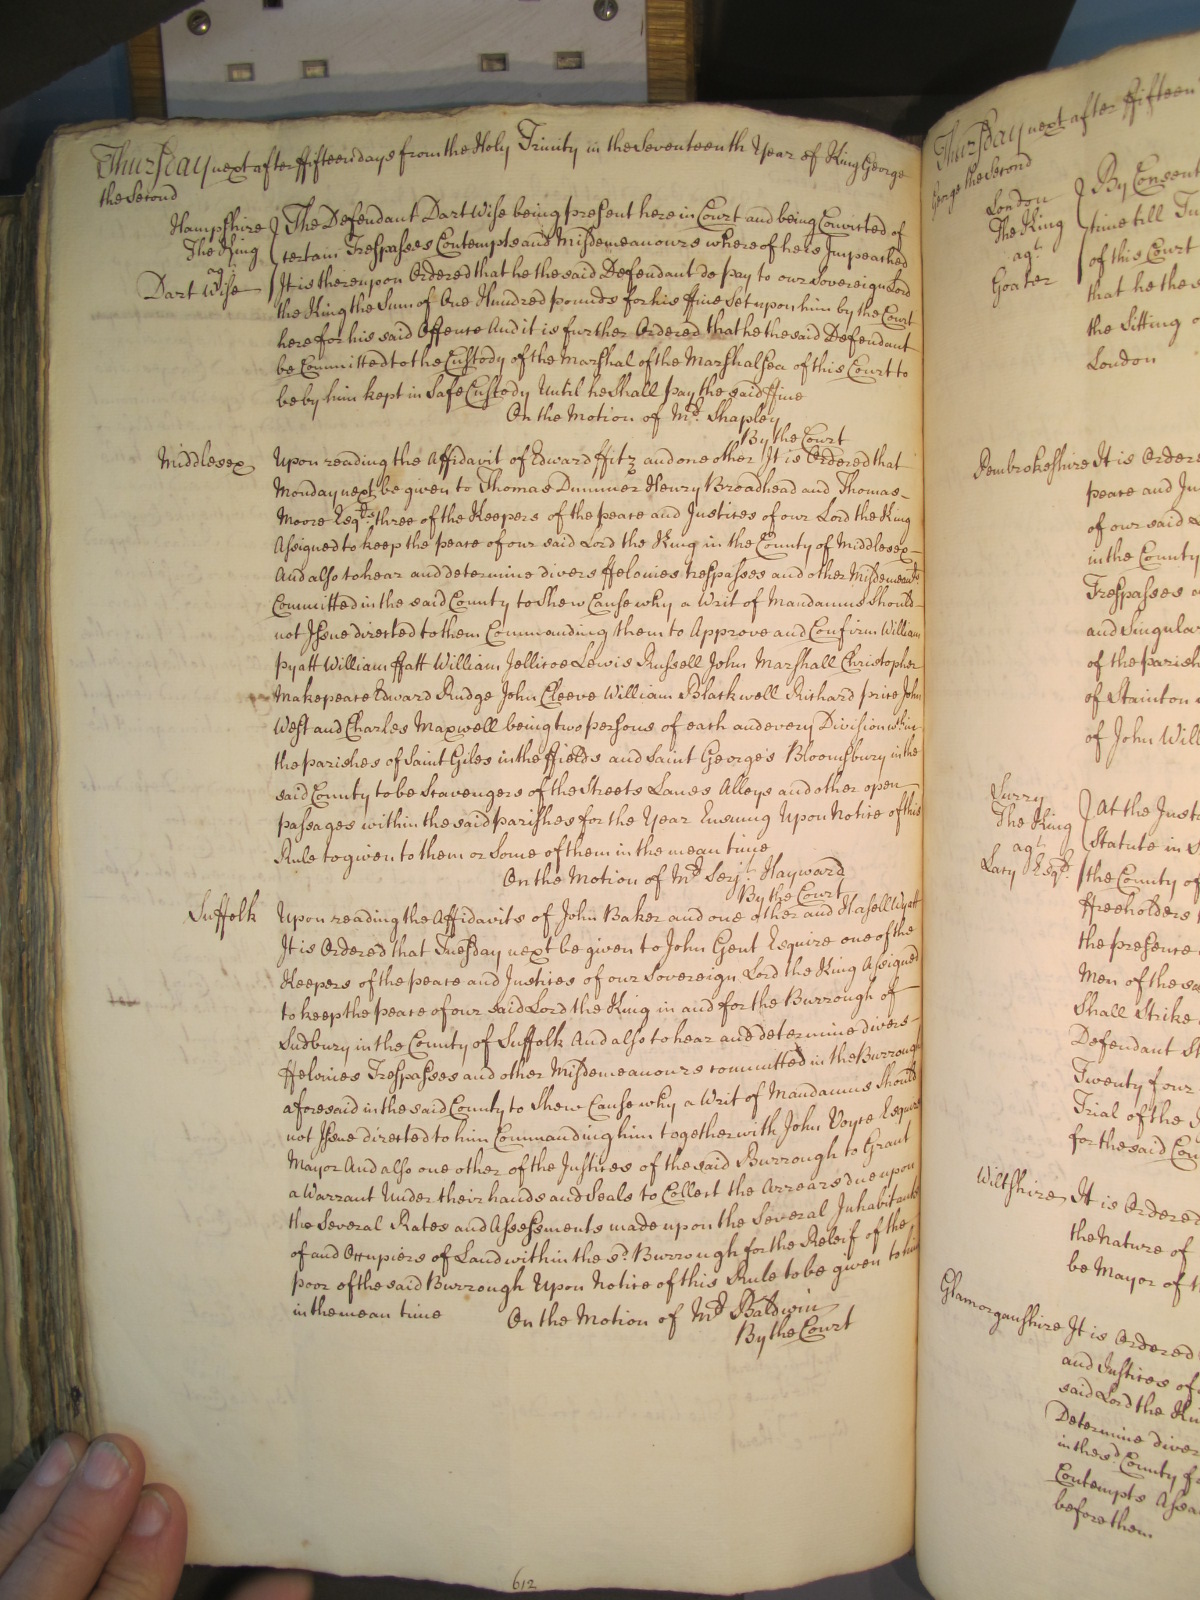 Thursday next after ffifteen days from the Holy Trinity in the Seventeenth Year of King George
the Second
Hampshire
The King
agt
Dart Wise
The Defendant Dart Wise being present here in Court and being Convicted of
certain Trespasses Contempts and Misdemeanours whereof he is Impeached
It is thereupon Ordered that he the said Defendant do pay to our Sovereign Lord
the King the Sum of One Hundred pounds for his ffine Set upon him by the Court
here for his said Offence And it is further Ordered that he the said Defendant
be Committed to the Custody of the Marshal of the Marshalsea of this Court to
be by him kept in Safe Custody Until he Shall pay the said ffine
On the Motion of Mr. Shapley
By the Court
Middlesex
Upon reading the Affidavit of Edward ffitz and one other It is Ordered that
Monday next be given to Thomas Dummer Henry Broadhead and Thomas
Moore Esqrs. three of the Keepers of the peace and Justices of our Lord the King
Assigned to keep the peace of our said Lord the King in the County of Middlesex
And also to hear and determine divers ffelonies trespasses and other Misdemeanrs
Committed in the said County to Shew Cause why a Writ of Mandamus Should
not Issue directed to them Commanding them to Approve and Confirm William
pyatt William ffatt William Jellicoe Lewis Russell John Marshall Christopher
Makepeace Edward Rudge John Cleeve William Blackwell Richard price John
West and Charles Maxwell being two persons of each and every Division wthin
the parishes of Saint Giles in the ffields and Saint George's Bloomsbury in the
said County to be Scavengers of the Streets Lanes Alleys and other open
passages within the said parishes for the Year Ensuing Upon Notice of this
Rule to given to them or Some of them in the mean time
On the Motion of Mr. Serjt. Hayward
By the Court
Suffolk
Upon reading the Affidavits of John Baker and one other and Hasell Wyatt
It is Ordered that Tuesday next be given to John Gent Esquire one of the
Keepers of the peace and Justices of our Sovereign Lord the King Assigned
to keep the peace of our said Lord the King in and for the Burrough of
Sudbury in the County of Suffolk And also to hear and determine divers
ffelonies Trespasses and other Misdemeanours committed in the Burrough
aforesaid in the said County to Shew Cause why a Writ of Mandamus Should
not Issue directed to him Commanding him together with John Voyce Esquire
Mayor And also one other of the Justices of the said Burrough to Grant
a Warrant Under their hands and Seals to Collect the Arrears due upon
the Several Rates and Assessments made upon the Several Inhabitants
of and Occupiers of Land within the sd. Burrough for the Releif of the
poor of the said Burrough Upon Notice of this Rule to be given to him
in the mean time
On the Motion of Mr. Baldwin
By the Court
612
Thursday next after ffifteen
George the Second
London
The King
agt.
Goater
By Consent
time till
of this Court
that he the s
the Sitting
London
Pembrokeshire
It is Ordere
peace and Ju
of our said L
in the County
Trespasses
and Singular
of the parish
of Stainton
of John Will
Surry
The King
agt.
Lacy Esqr.
At the Insta
Statute in
the County of
ffreeholders
the presence
Men of the sa
Shall Strike
Defendant St
Twenty four
Trial of the
for the said Cou
Wiltshire
It is Ordered
the Nature of
be Mayor of t
Glamorganshire
It is Ordered
and Justices of
said Lord the Kin
Determine diver
in the sd. County
Contempts
before them